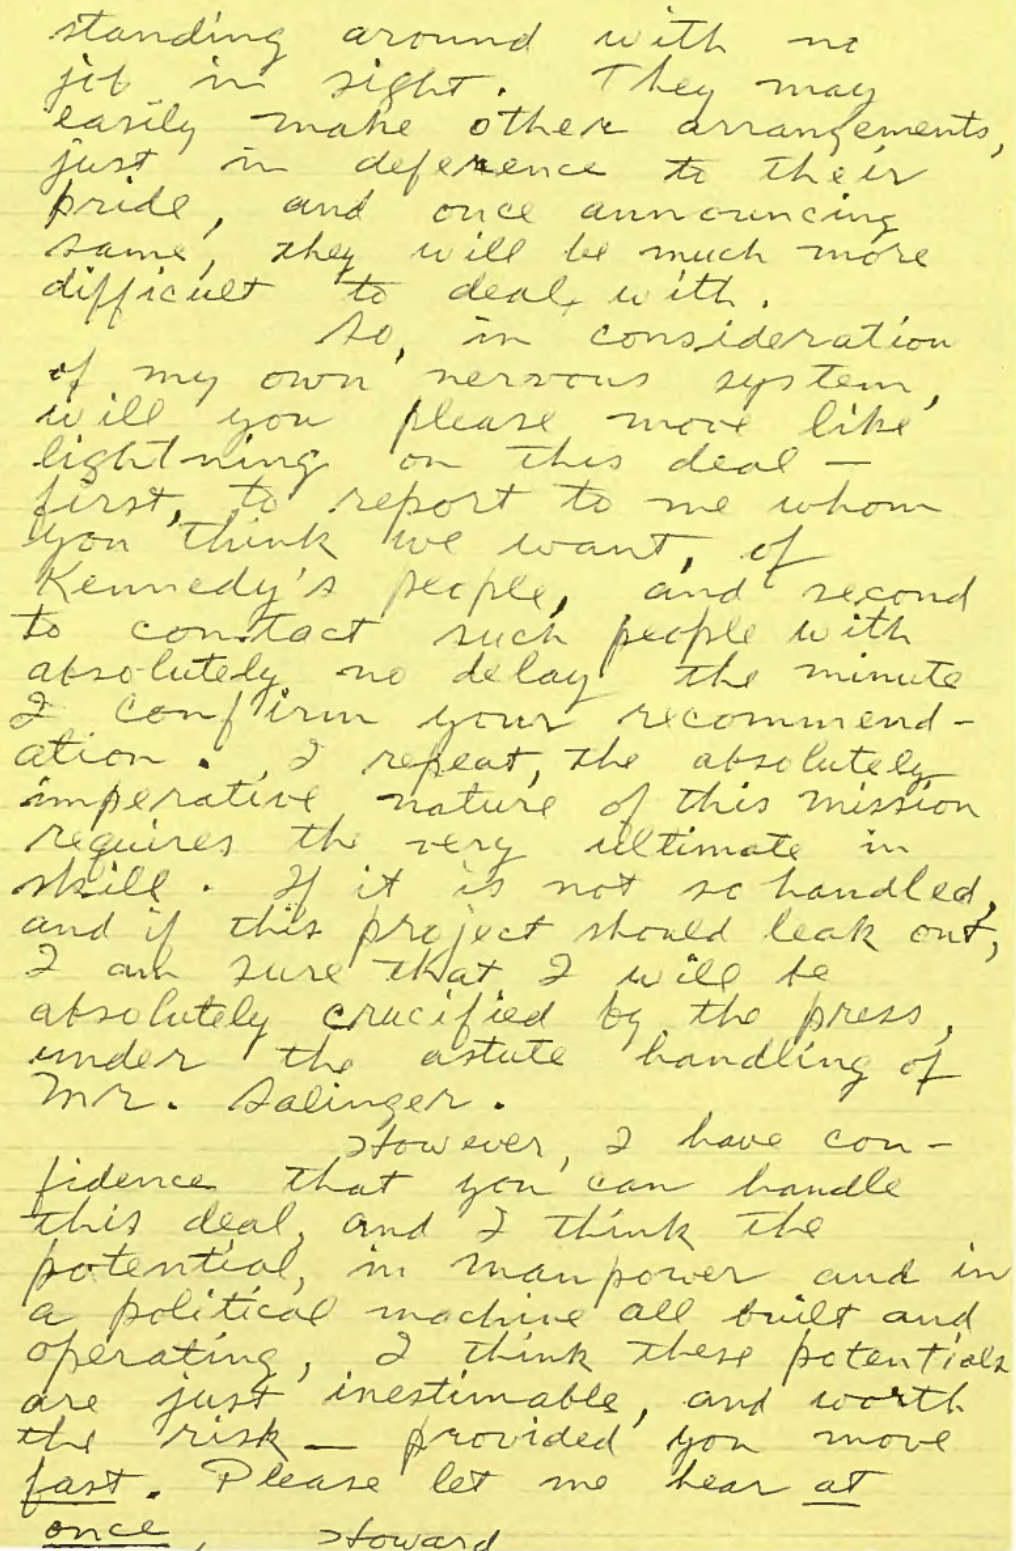 standing around with no
job in sight. They may
easily make other arrangements,
just in deference to their
pride, and once announcing
same, they will be much more
difficult to deal with.
So, in consideration
of my own nervous system,
will you please move like
lightning on this deal —
first, to report to me whom
you think we want, of
Kennedy's people, and second
to contact such people with
absolutely no delay the minute
I confirm your recommend-
ation. I repeat, the absolutely
imperative nature of this mission
requires the very ultimate in
skill. If it is not so handled,
and if this project should leak out,
I am sure that I will be
absolutely crucified by the press,
under the astute handling of
Mr. Salinger.
However, I have con-
fidence that you can handle
this deal, and I think the
potential, in manpower and in
a political machine all built and
operating, I think these potentials
are just inestimable, and worth
the risk — provided you move
fast. Please let me hear at
once, Howard